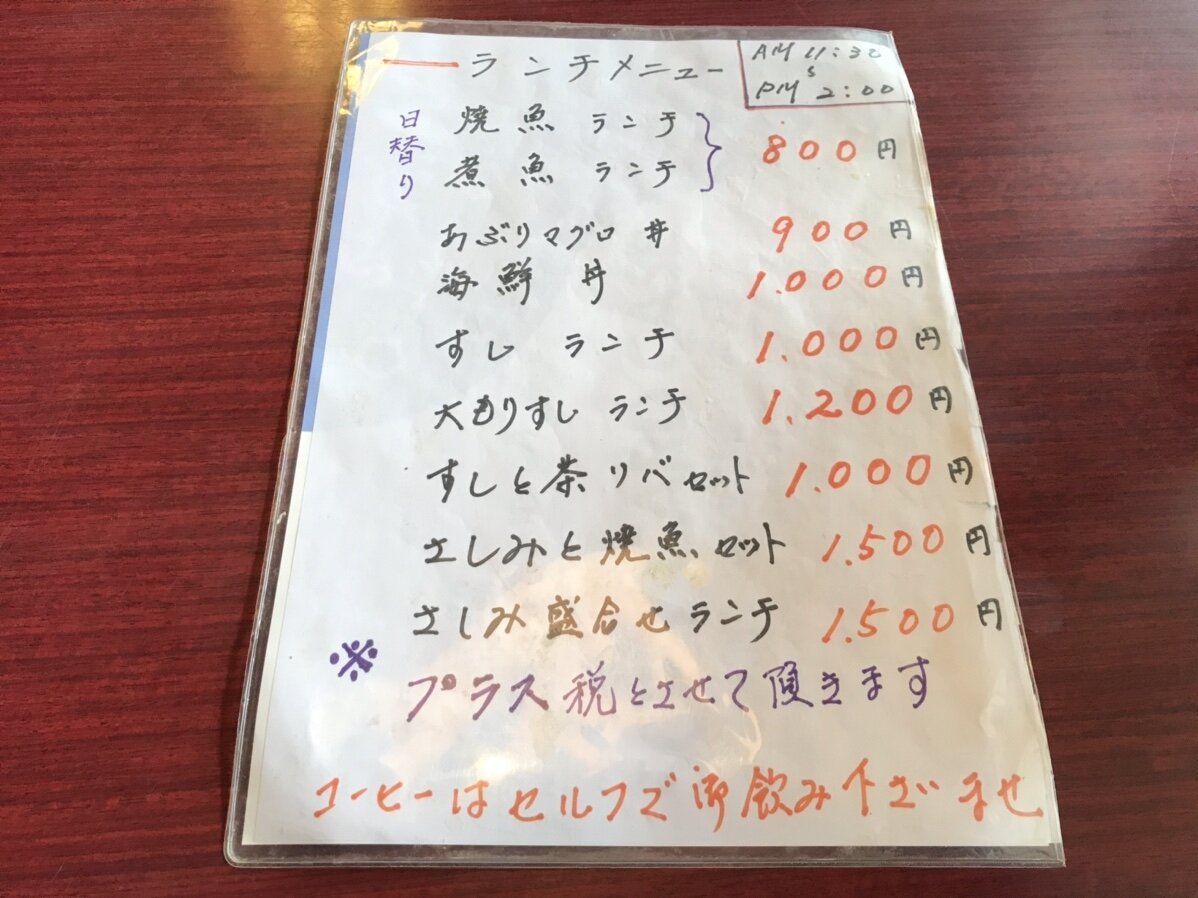 ランチメニュー
AM 11:30
〜
PM 2:00
日替り
焼魚ランチ
煮魚ランチ
800円
あぶりマグロ丼 900円
海鮮丼 1.000円
すしランチ 1.000円
大もりすしランチ 1.200円
すしと茶リバセット 1.000円
さしみと焼魚セット 1.500円
さしみ盛合せランチ 1.500円
※プラス税とさせて頂きます
コーヒーはセルフで御飲み下ざいませ